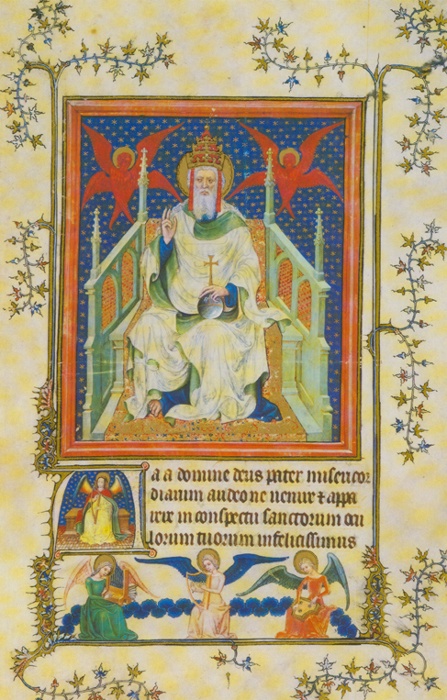 A a a domine deus pater misericor
diarum audeo ne uenire ⁊ appa
rere in conspectu sanctorum ocu
lorum tuorum infelicissimus